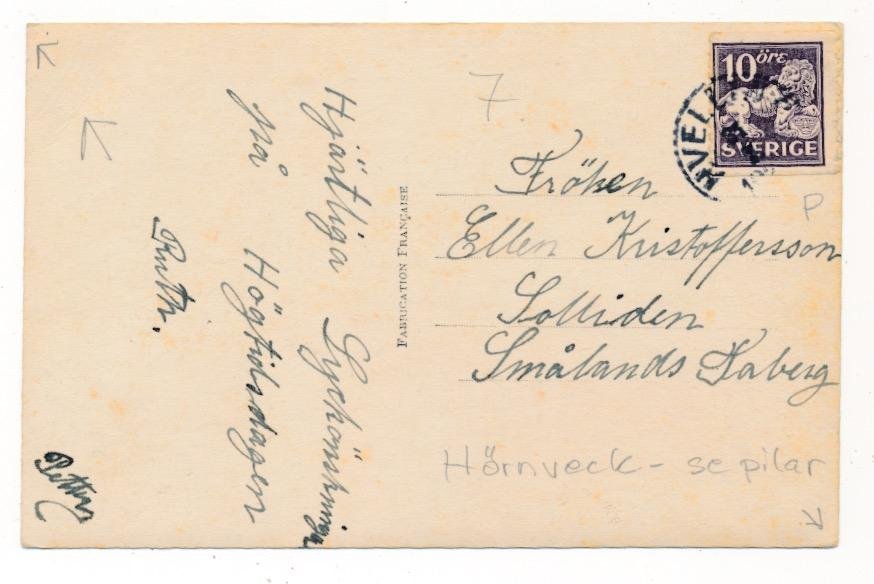 Hjärtliga Lyckönskningar
på Högtidsdagen
Ruth.
Petter
FABRICATION FRANÇAISE
7
10 öre
SVERIGE
P
Fröken
Ellen Kristoffersson
Solliden
Smålands Taberg
Hörnveck - se pilar